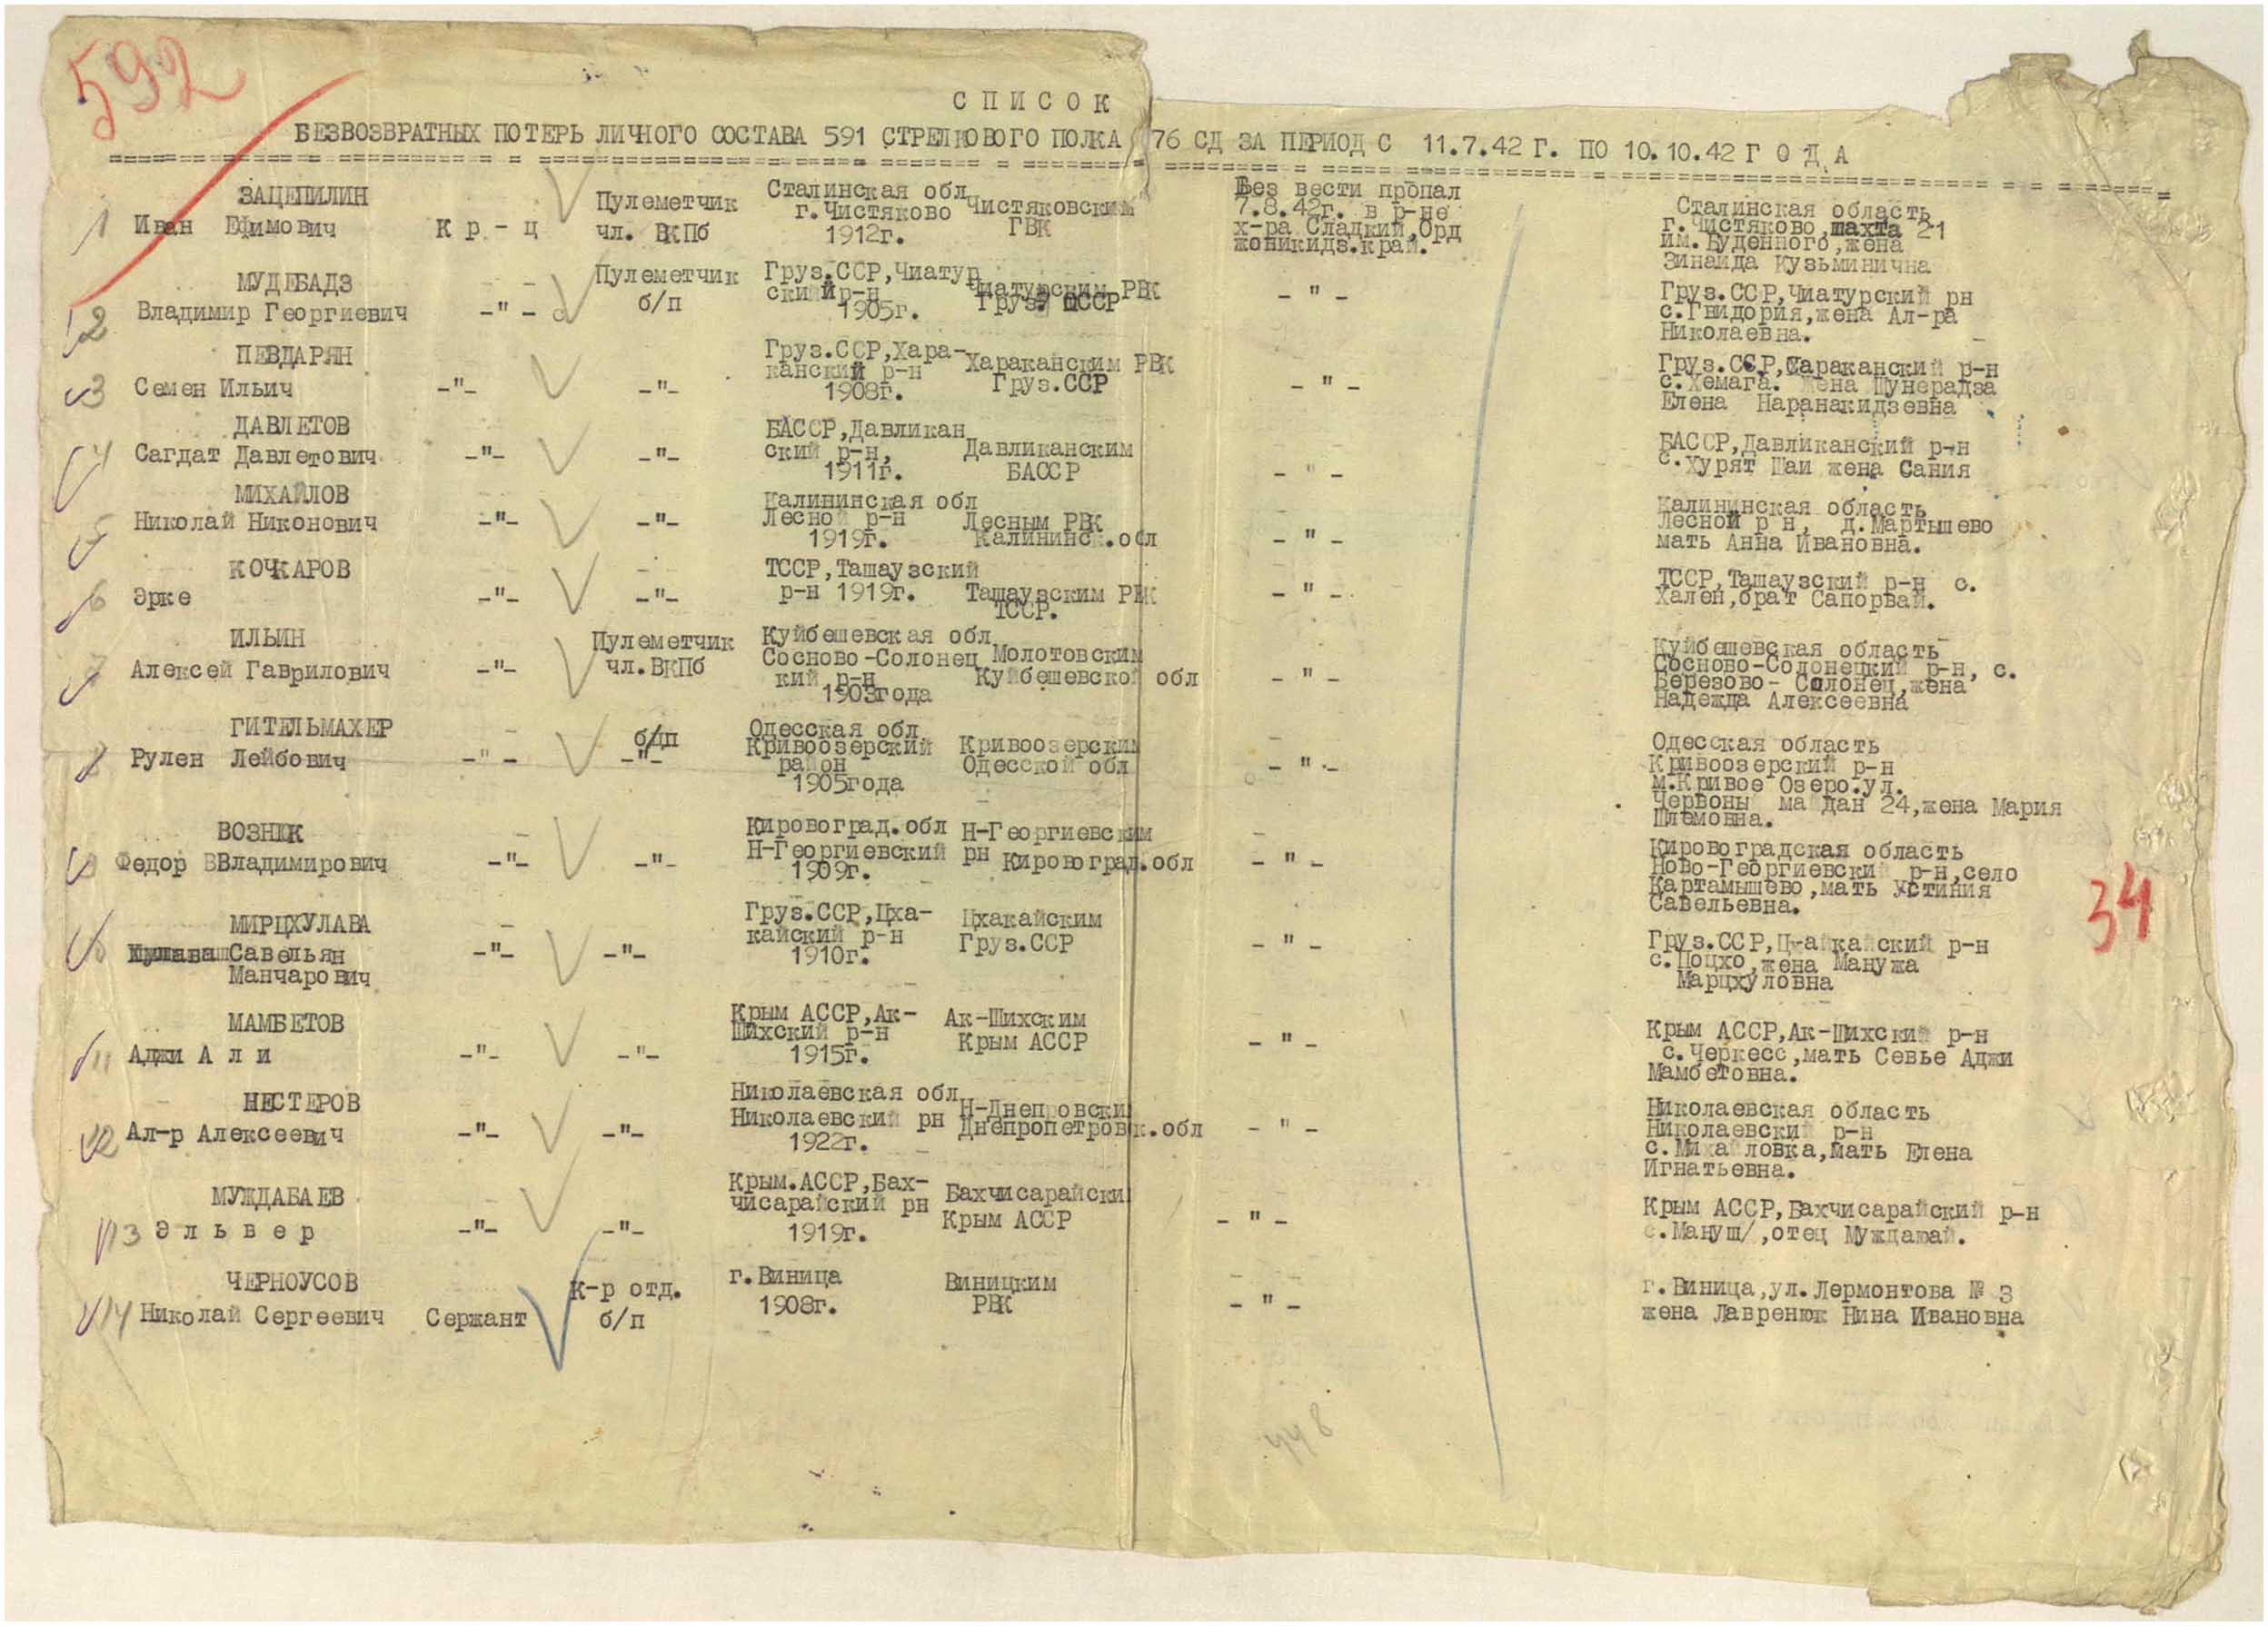 592
СПИСОК
БЕЗВОЗВРАТНЫХ ПОТЕРЬ ЛИЧНОГО СОСТАВА 591 СТРЕЛКОВОГО ПОЛКА 76 СД ЗА ПЕРИОД С 11.7.42 Г. ПО 10.10.42 ГОДА
ЗАЦЕПИЛИН
1 Иван Ефимович
Кр-ц
Пулеметчик
чл. ВКПб
Сталинская обл
г. Чистяково
1912г.
Чистяковским
ГВК
Без вести пропал
7.8.42г. в р-не
х-ра Сладкий,Орд
жоникидз.край.
Сталинская область
г. Чистяково,шахта 21
им. Буденного,жена
Зинаида Кузьминична
МУДЕБАДЗ
2 Владимир Георгиевич
-"-
Пулеметчик
б/п
Груз.ССР,Чиатур
ский р-н
1905г.
Чиатурским РВК
Груз. ССР
- " -
Груз.ССР,Чиатурский рн
с.Гвидория,жена Ал-ра
Николаевна.
ПЕВДАРЯН
3 Семен Ильич
-"-
-"-
Груз.ССР,Хара-
канский р-н
1908г.
Хараканским РВК
Груз.ССР
- " -
Груз.ССР, р-н
с.Хемага. жена Шунерадза
Елена Наранакидзевна
ДАВЛЕТОВ
4 Сагдат Давлетович
-"-
-"-
БАССР,Давликан
ский р-н,
1911г.
Давликанским
БАССР
- " -
БАССР,Давликанский р-н
с.Хурят Шаи жена Сания
МИХАЙЛОВ
5 Николай Никонович
-"-
-"-
Калининская обл
Лесной р-н
1919г.
Лесным РВК
Калининс .обл
- " -
Калининская область
Лесной р н, д.Мартышево
мать Анна Ивановна.
КОЧКАРОВ
6 Эрке
-"-
-"-
ТССР,Ташаузский
р-н 1919г.
Ташаузским РВК
ТССР.
- " -
ТССР,Ташаузский р-н с.
Хален,брат Сапорвай.
ИЛЬИН
7 Алексей Гаврилович
-"-
Пулеметчик
чл.ВКПб
Куйбешевская обл
Сосново-Солонец
кий р-н
1903года
Молотовским
Куйбешевской обл
- " -
Куйбешевская область
Сосново-Солонецкий р-н, с.
Березово- Солонец,жена
Надежда Алексеевна
ГИТЕЛЬМАХЕР
8 Рулен Лейбович
-"-
б/п
-"-
Одесская обл
Кривоозерский
район
1905года
Кривоозерским
Одесской обл
- " -
Одесская область
Кривоозерский р-н
м.Кривое Озеро.ул.
Червоны майдан 24,жена Мария
Шлемовна.
ВОЗНЮК
9 Федор ВВладимирович
-"-
-"-
Кировоград.обл
Н-Георгиевский рн
1909г.
Н-Георгиевским
Кировоград.обл
- " -
Кировоградская область
Ново-Георгиевский р-н,село
Картамышево,мать Устиния
Савельевна.
34
МИРЦХУЛАВА
10 Савельян
Манчарович
-"-
-"-
Груз.ССР,Цха-
кайский р-н
1910г.
Цхакайским
Груз.ССР
- " -
Груз.ССР, р-н
с.Поцхо,жена Манужа
Марцхуловна
МАМБЕТОВ
11 Аджи Али
-"-
-"-
Крым АССР,Ак-
Шихский р-н
1915г.
Ак-Шихским
Крым АССР
- " -
Крым АССР,Ак-Шихский р-н
с.Черкесс,мать Севье Аджи
Мамбетовна.
НЕСТЕРОВ
12 Ал-р Алексеевич
-"-
-"-
Николаевская обл
Николаевский рн
1922г.
Н-Днепровски
Днепропетров к.обл
- " -
Николаевская область
Николаевский р-н
с.Михайловка,мать Елена
Игнатьевна.
МУЖДАБАЕВ
13 Эльвер
-"-
-"-
Крым.АССР,Бах-
чисарайский рн
1919г.
Бахчисарайски
Крым АССР
- " -
Крым АССР,Бахчисарайский р-н
с.Мануш/,отец
ЧЕРНОУСОВ
14 Николай Сергеевич
Сержант
К-р отд.
б/п
г.Виница
1908г.
Виницким
РВК
- " -
г.Виница,ул.Лермонтова № 3
жена Лавренюк Нина Ивановна
448